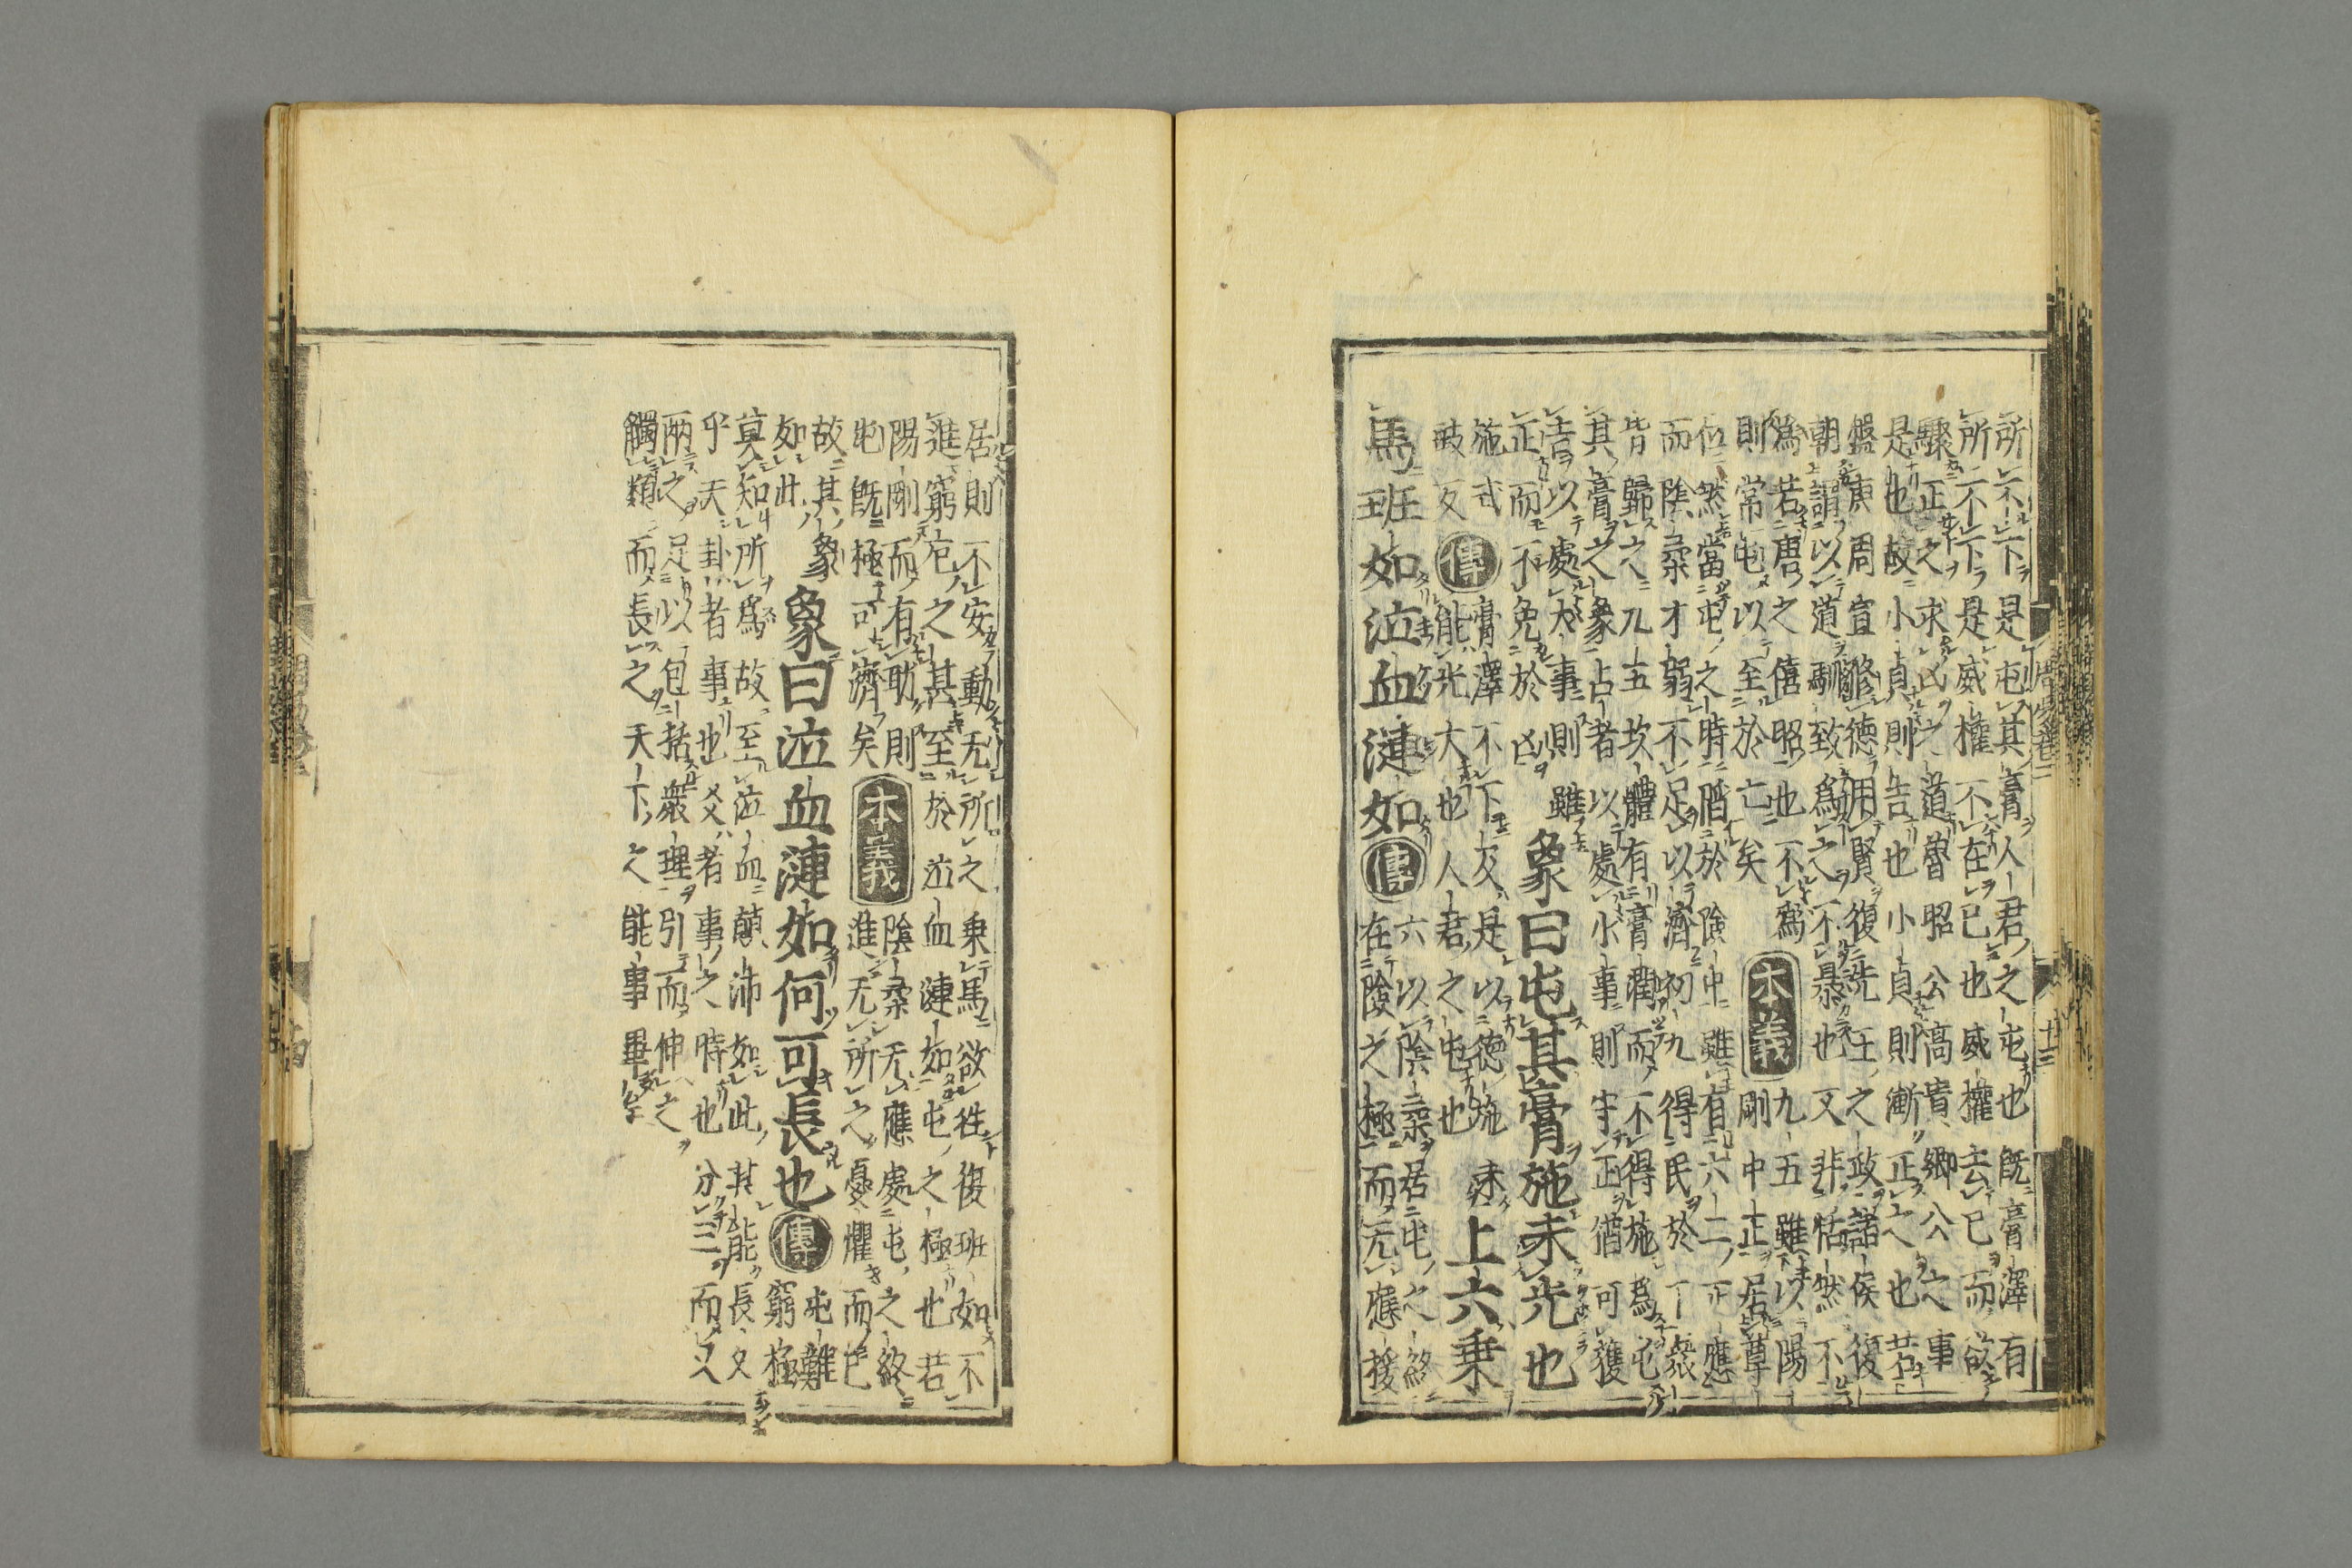 所不下是屯其膏人君之屯也既膏澤有
所不下是威權不在己也威權去己而欲
驟正之求凶之道魯昭公高貴鄉公之事
是也故小貞則吉也小貞則漸正之也若
盤庚周宣脩德用賢復先王之政諸侯復
朝謂以道馴致爲之不暴也又非恬然不
爲若唐之僖昭也不爲
則常屯以至於亡矣
本義
九五雖以陽
剛中正居尊
位然當屯之時陷於險中雖有六二正應
而陰柔才弱不足以濟初九得民於下衆
皆歸之九五坎體有膏潤而不得施爲屯
其膏之象占者以處小事則守正猶可獲
吉以處大事則雖
正而不免於凶
象曰屯其膏施未光也
傳
膏澤不下及是以德施未
能光大也人君之屯也
上六乗
馬班如泣血漣如
傳
六以陰柔居屯之終
在險之極而无應援
居則不安動无所之乗馬欲往復班如不
進窮厄之甚至於泣血漣如屯之極也若
陽剛而有助則
屯既極可濟矣
本義
陰柔无應處屯之終
進无所之憂懼而已
故其象
如此
象曰泣血漣如何可長也
傳
屯難
窮極
莫知所爲故至泣血顛沛如此其能長久
乎夫卦者事也爻者事之時也分三而又
兩之足以包括衆理引而伸之
觸類而長之天下之能事畢矣